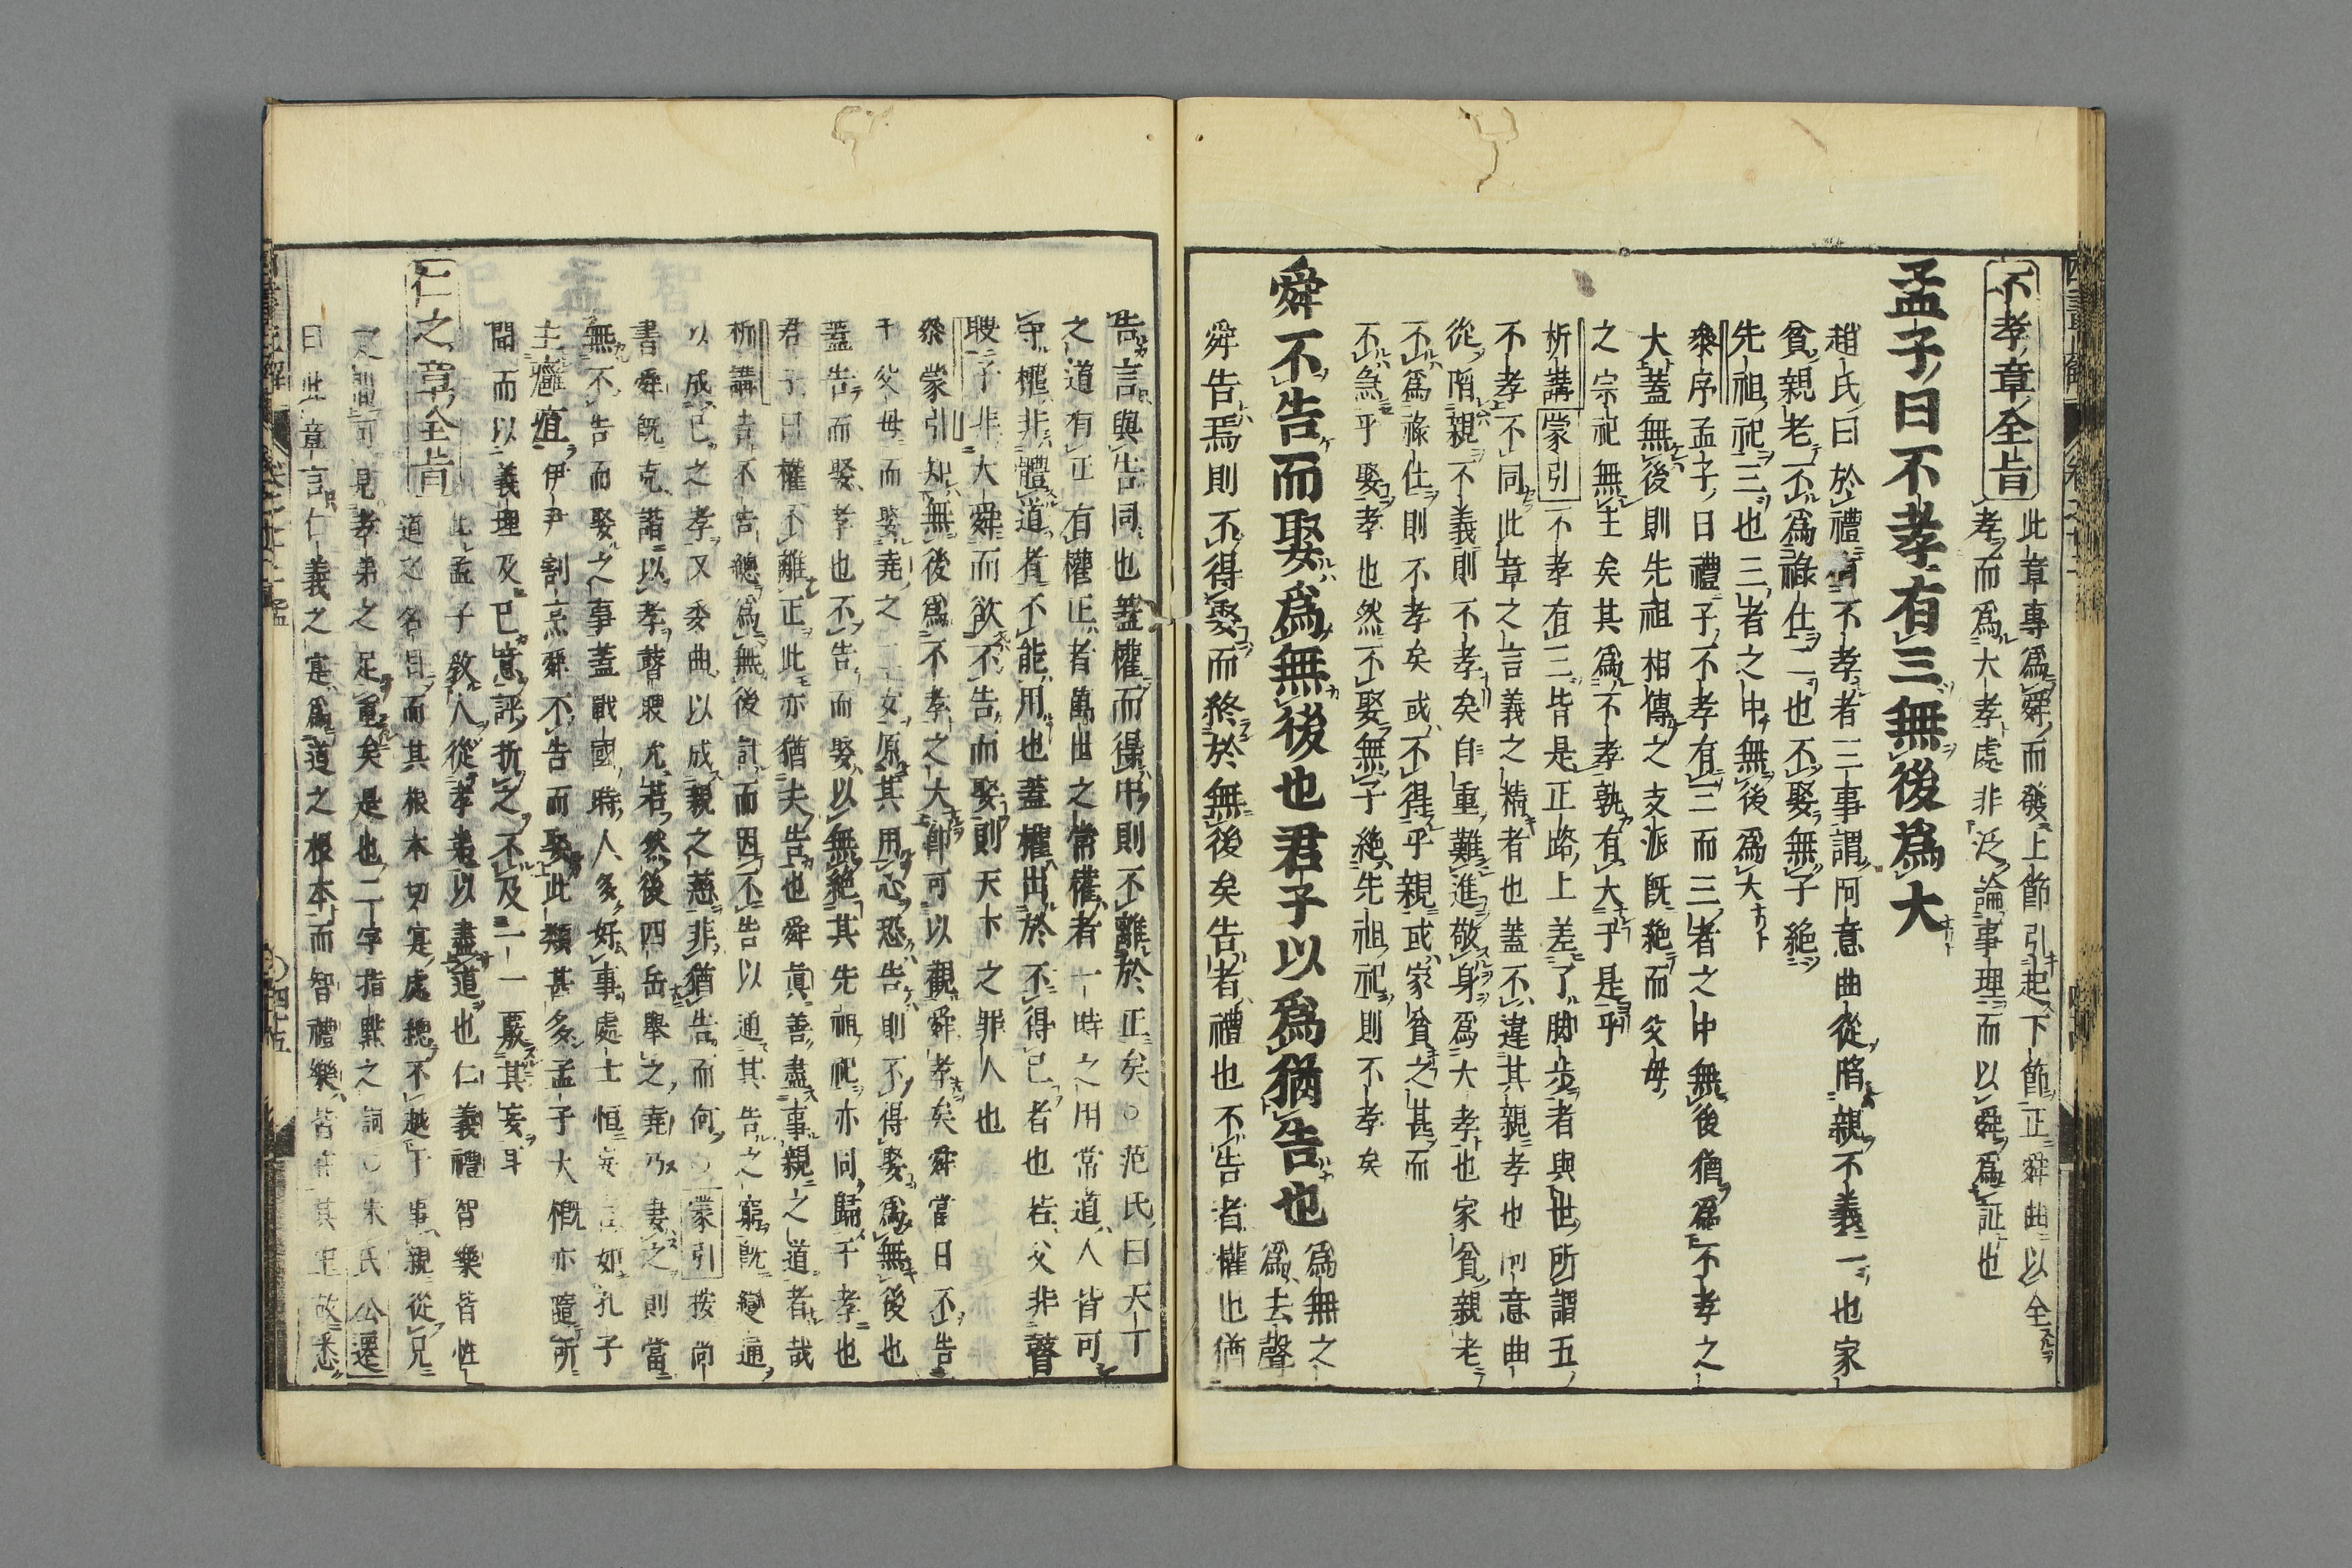 不孝章全旨
此章專爲舜而發上節引起下節正舜曲以全
孝而爲大孝處非泛論事理而以舜爲証也
孟子曰不孝有三無後爲大
趙氏曰於禮有不孝者三事謂阿意曲從陷親不義一也家
貧親老不爲祿仕二也不娶無子絶
先祖祀三也三者之中無後爲大
叅序孟子曰禮子不孝有三而三者之中無後猶爲不孝之
大蓋無後則先祖相傳之支派既絶而父母
之宗祀無主矣其爲不孝孰有大乎是乎
析講蒙引不孝有三皆是正路上差了脚步者與世所謂五
不孝不同此章之言義之精者也蓋不違其親孝也阿意曲
從陷親不義則不孝矣自重難進敬身爲大孝也家貧親老
不爲祿仕則不孝矣或不得乎親或家貧之甚而
不急乎娶孝也然不娶無子絶先祖祀則不孝矣
舜不告而娶爲無後也君子以爲猶告也
爲無之
爲去聲
舜告焉則不得娶而終於無後矣告者禮也不告者權也猶
告言與告同也蓋權而得中則不離於正矣○范氏曰天下
之道有正有權正者萬世之常權者一時之用常道人皆可
守權非體道者不能用也蓋權出於不得已者也若父非瞽
瞍子非大舜而欲不告而娶則天下之罪人也
叅蒙引知無後爲不孝之大卽可以觀舜孝矣舜當日不告
于父母而娶堯之二女原其用心恐告則不得娶爲無後也
蓋告而娶孝也不告而娶以無絶其先祖祀亦同歸于孝也
君子曰權不離正此亦猶夫告也舜眞善盡事親之道者哉
析講責不告總爲無後計而因不告以通其告之窮既變通
以成己之孝又委曲以成親之慈非猶告而何○蒙引按尚
書舜既克諧以孝瞽瞍允若然後四岳舉之堯乃妻之則當
無不告而娶之事蓋戰國時人多好事處士恒妄言如孔子
主癰疽伊尹割烹舜不告而娶此類甚多孟子大概亦隨所
聞而以義理及己意評折之不及一一覈其妄耳
仁之章全旨
此孟子教人從孝弟以盡道也仁義禮智樂皆性
道之名目而其根本切寔處總不越于事親從兄
之間可見孝弟之足重矣是也二字指㸃之詞○朱氏公遷
曰此章言仁義之寔爲道之根本而智禮樂皆其主故悉